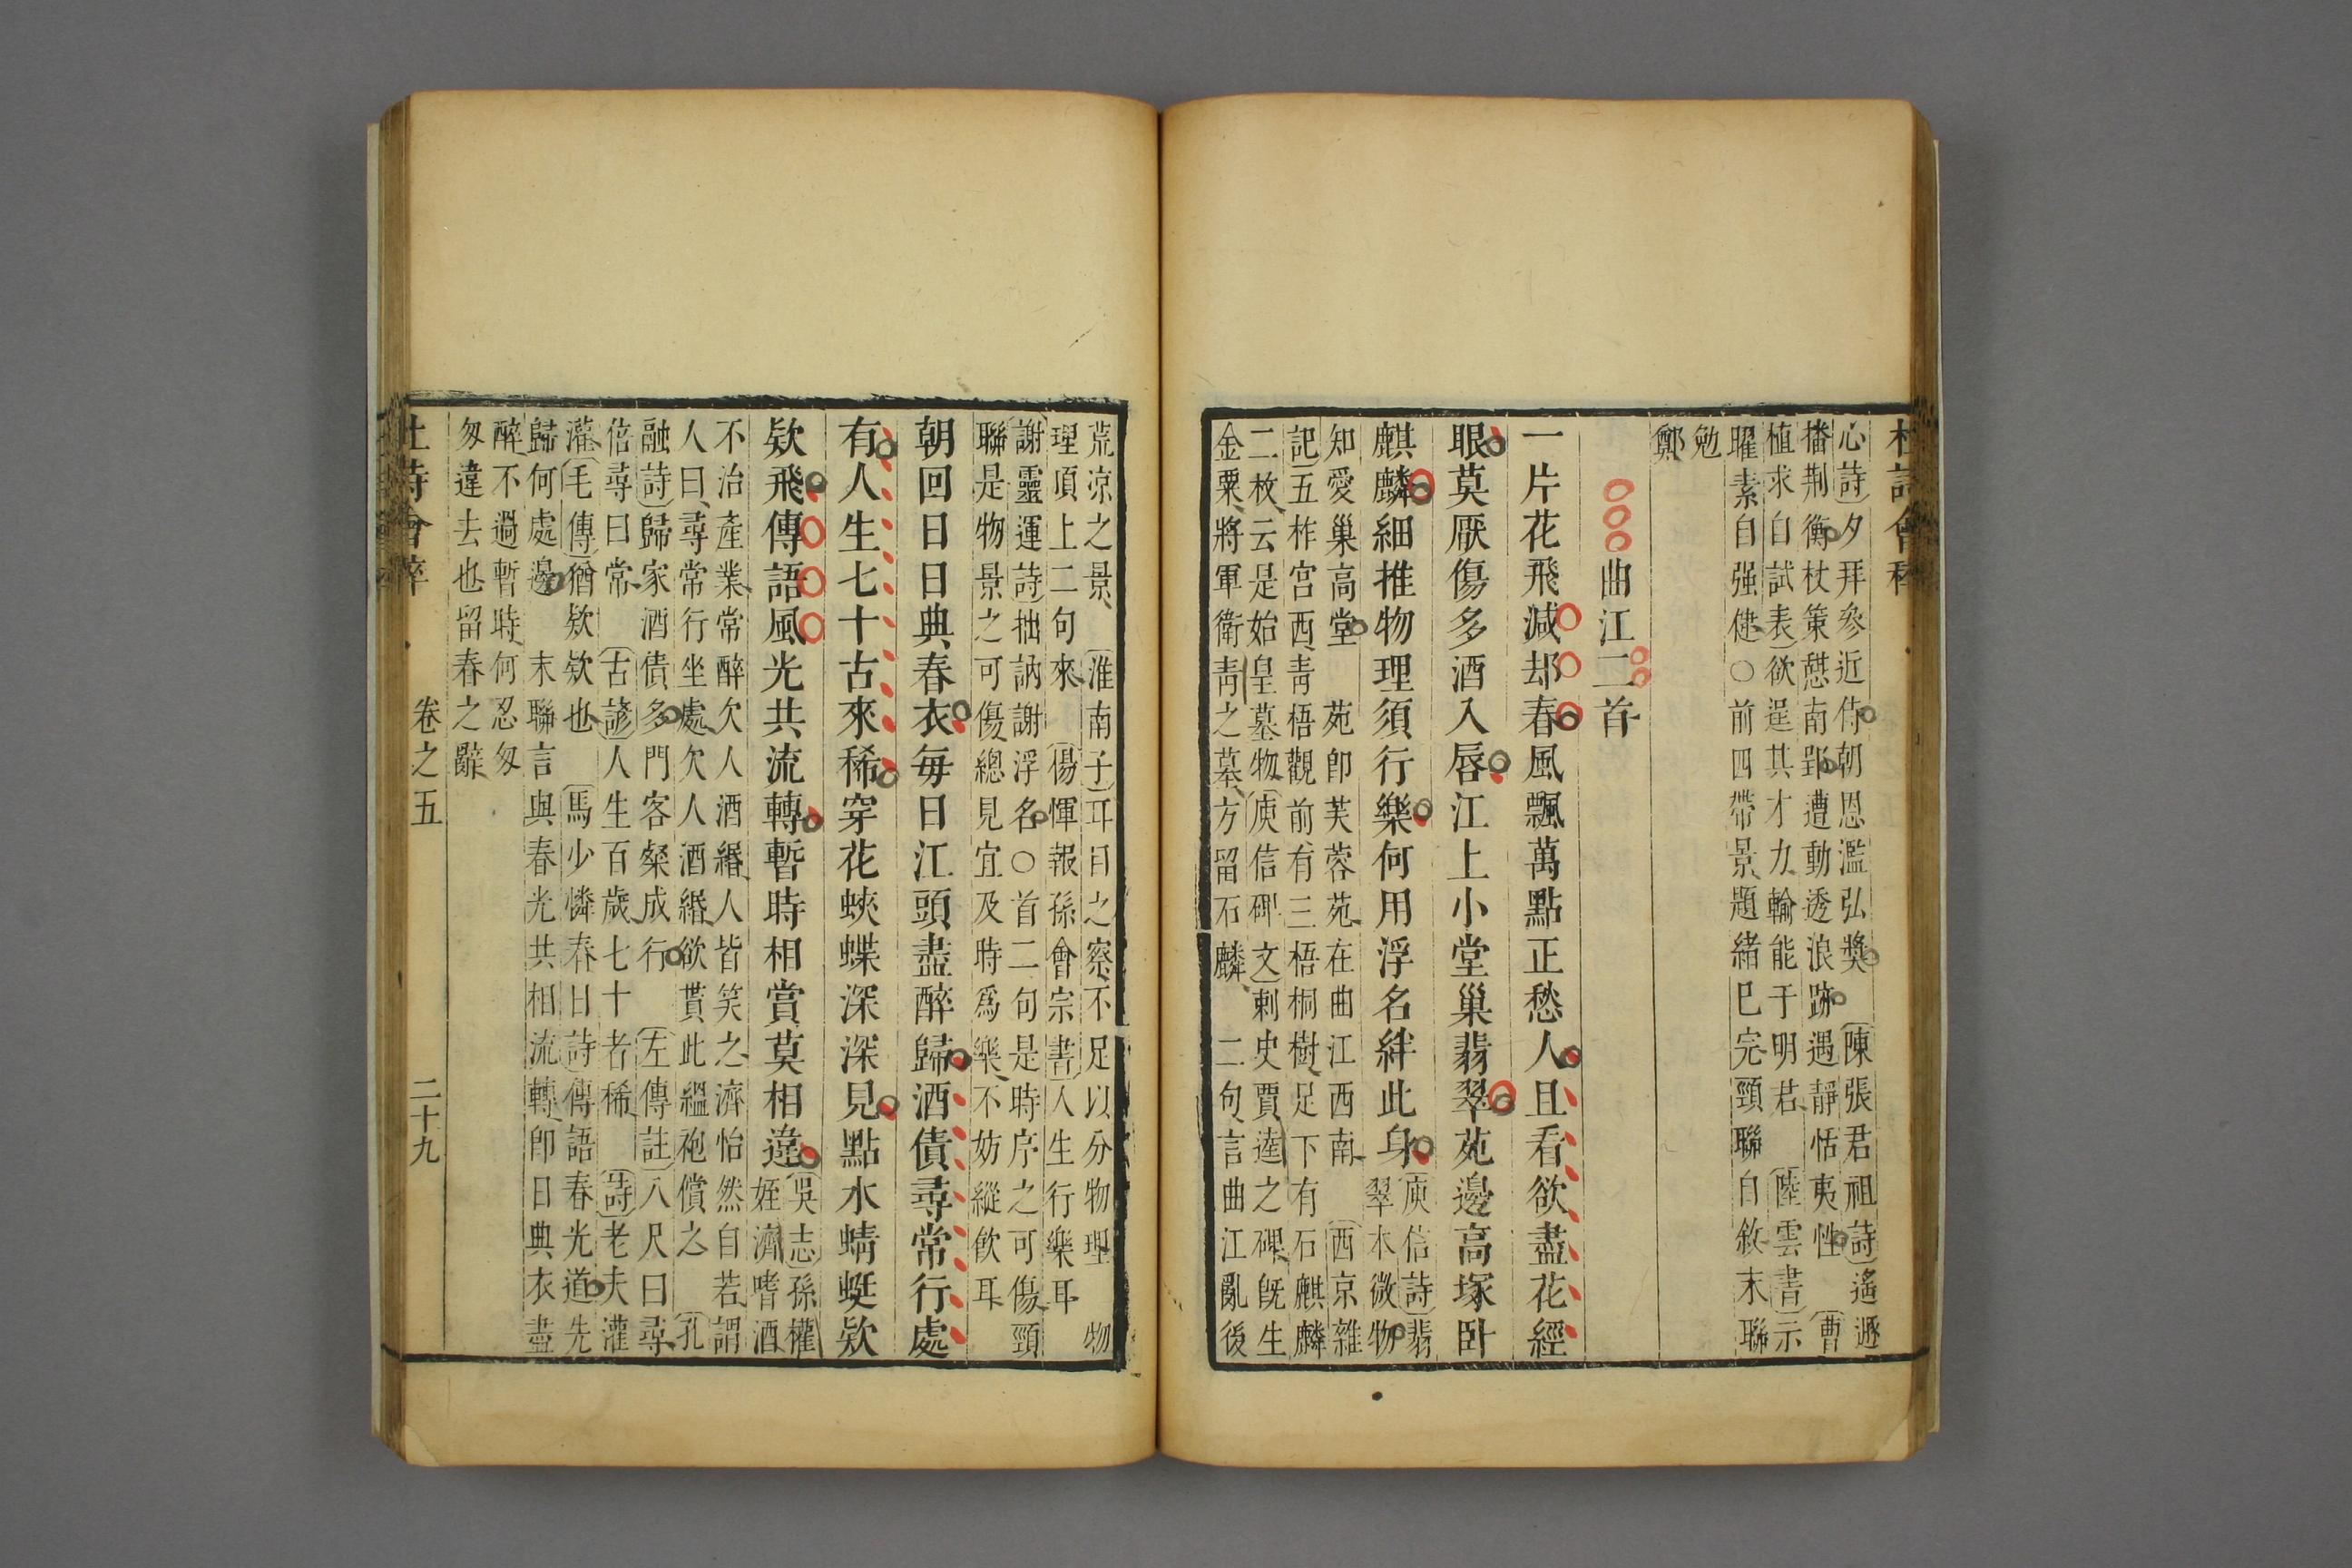 杜詩會稡
心詩夕拜參近侍朝恩濫弘獎陳張君祖詩遙遯
播荆衡杖策憇南郢遭動透浪跡遇靜恬夷性 曹
植求自試表欲逞其才力輸能于明君 陸雲書示
曜素自强健○前四帶景題緒已完頸聯自敘末聯
勉
鄭
曲江二首
一片花飛減却春風飄萬點正愁人且看欲盡花經
眼莫厭傷多酒入唇江上小堂巢翡翠苑邊高塚卧
麒麟細推物理須行樂何用浮名絆此身
庾信詩翡
翠本微物
知愛巢高堂 苑即芙蓉苑在曲江西南 西京雜
記五柞宫西青梧觀前有三梧桐樹足下有石麒麟
二枚云是始皇墓物庾信碑文刺史賈逵之碑旣生
金粟將軍衛青之墓方留石麟 二句言曲江亂後
荒凉之景 淮南子耳目之察不足以分物理 物
理項上二句來 楊惲報孫會宗書人生行樂耳
謝靈運詩拙訥謝浮名○首二句是時序之可傷頸
聯是物景之可傷總見宜及時爲樂不妨縱飲耳
朝回日日典春衣每日江頭盡醉歸酒債尋常行處
有人生七十古來稀穿花蛺蝶深深見點水蜻蜓欵
欵飛傳語風光共流轉暫時相賞莫相違
吳志孫權
姪濟嗜酒
不治產業常醉欠人酒緡人皆笑之濟怡然自若謂
人曰尋常行坐處欠人酒緡欲貰此緼袍償之 孔
融詩歸家酒債多門客粲成行 左傳註八尺曰尋
倍尋曰常 古諺人生百歲七十者稀 詩老夫灌
灌毛傳猶欵欵也 馬少憐春日詩傳語春光道先
歸何處邊 末聯言與春光共相流轉即日典衣盡
醉不過暫時何忍匆
匆違去也留春之辭
杜詩會稡 卷之五 二十九